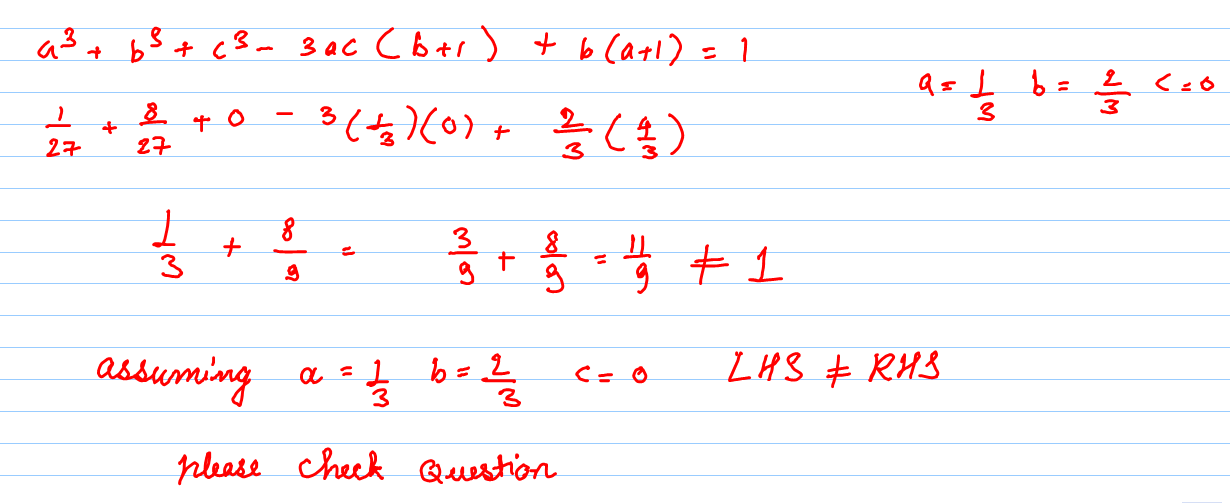 a³ + b³ + c³ - 3ac (b+1) + b(a+1) = 1
a = 1/3 b = 2/3 c = 0
1/27 + 8/27 + 0 - 3(1/3)(0) + 2/3 (4/3)
1/3 + 8/9 = 3/9 + 8/9 = 11/9 ≠ 1
assuming a = 1/3 b = 2/3 c = 0 LHS ≠ RHS
please check Question